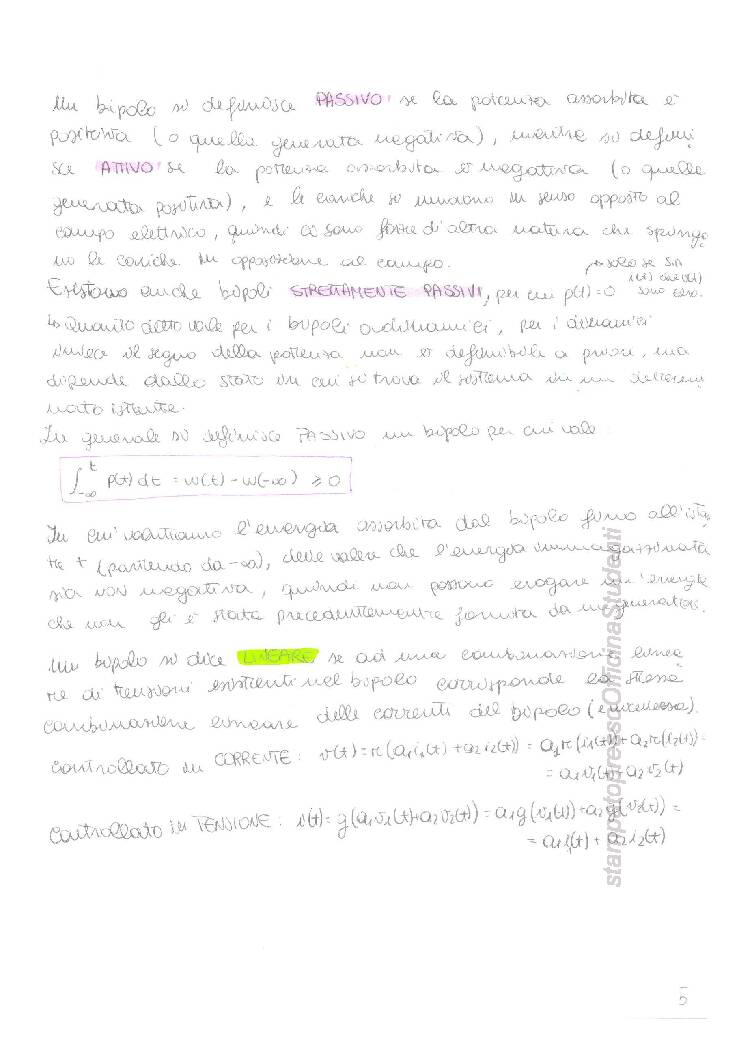 Un bipolo si definisce PASSIVO se la potenza assorbita è
positiva (o quella generata negativa), mentre si defini
sce ATTIVO se la potenza assorbita è negativa (o quella
generata positiva), e le cariche si muovono in senso opposto al
campo elettrico, quindi ci sono forze d'altra natura che spingo
no le cariche in opposizione al campo.
→ solo se sia
i(t) che v(t)
sono zero.
Esistono anche bipoli STRETTAMENTE PASSIVI, per cui p(t)=0
↳ Quanto detto vale per i bipoli adinamici, per i dinamici
invece il segno della potenza non è definibile a priori, ma
dipende dallo stato in cui si trova il sistema in un determi
nato istante.
In generale si definisce PASSIVO un bipolo per cui vale:
∫_{-∞}^{t} p(t) dt = w(t) - w(-∞) ≥ 0
In cui valutiamo l'energia assorbita dal bipolo fino all'istan
te t (partendo da -∞), deve valere che l'energia immagazzinata
sia non negativa, quindi non possono erogare un'energia
che non gli è stata precedentemente fornita da un generatore.
Un bipolo si dice LINEARE se ad una combinazione linea
re di tensioni esistenti nel bipolo corrisponde la stessa
combinazione lineare delle correnti del bipolo (e viceversa).
Controllato in CORRENTE: v(t) = r(a₁i₁(t) + a₂i₂(t)) = a₁r(i₁(t)) + a₂r(i₂(t)) =
= a₁v₁(t) + a₂v₂(t)
Controllato in TENSIONE: i(t) = g(a₁v₁(t) + a₂v₂(t)) = a₁g(v₁(t)) + a₂g(v₂(t)) =
= a₁i₁(t) + a₂i₂(t)
stampatopressoOfficinaStudenti
5